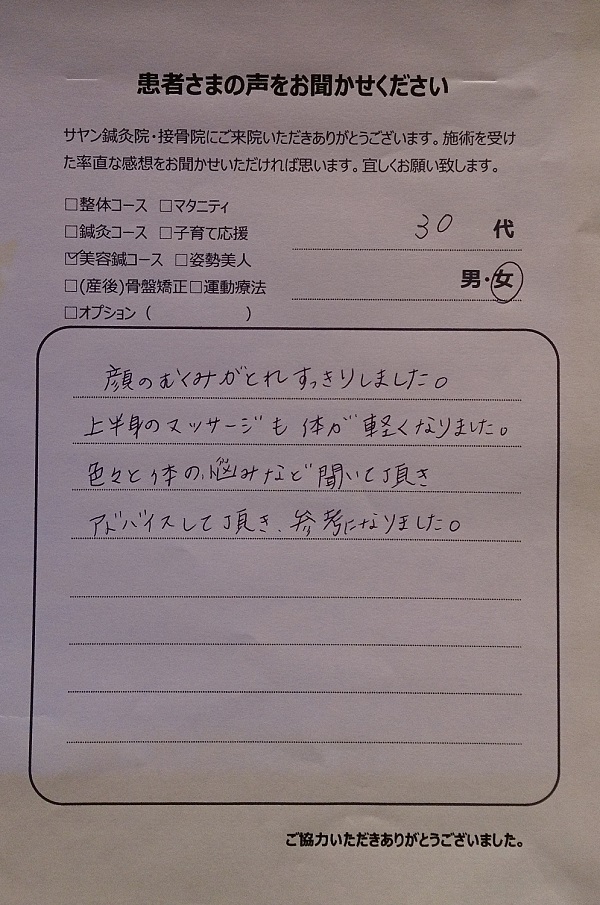 患者さまの声をお聞かせください
サヤン鍼灸院・接骨院にご来院いただきありがとうございます。施術を受け
た率直な感想をお聞かせいただければ思います。宜しくお願い致します。
□整体コース □マタニティ
□鍼灸コース □子育て応援
☑美容鍼コース □姿勢美人
□(産後)骨盤矯正□運動療法
□オプション（ ）
30 代
男・女
顔のむくみがとれすっきりしました。
上半身のマッサージも体が軽くなりました。
色々と体の悩みなど聞いて頂き
アドバイスして頂き、参考になりました。
ご協力いただきありがとうございました。